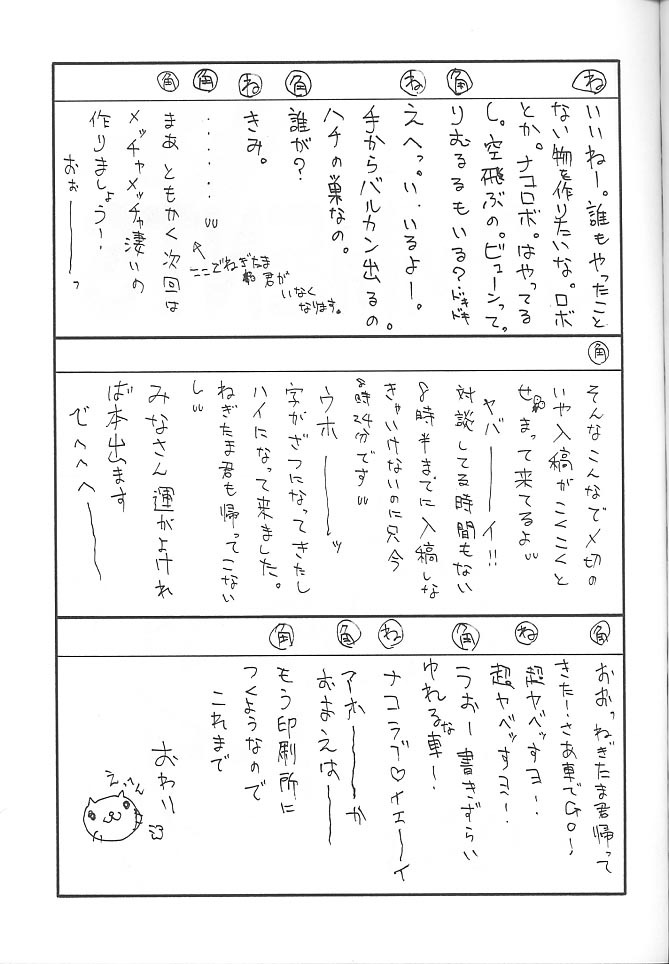 ね
いいねー。誰もやったこと
ない物を作りたいな。ロボ
とか。ナコロボ。はやってる
し。空飛ぶの。ビューンって。
角
りむるるもいる？ドキドキ
ね
えへっ。い、いるよー。
手からバルカン出るの。
ハチの巣なの。
角
誰が？
ね
きみ。
角
・・・・・・
ここでねぎたま
君が
いなく
なります。
角
まあ ともかく次回は
メッチャメッチャ凄いの
作りましょう！
おぉーーーっ
角
そんなこんなで〆切の
いや入稿がこくこくと
せまって来てるよ
ヤバーーーイ!!
対談してる時間もない
8時半までに入稿しな
きゃいけないのに只今
8時24分です
ウホーーーッ
字がざつになってきたし
ハイになって来ました。
ねぎたま君も帰ってこない
し
みなさん 運がよけれ
ば本出ます
でへへへーーー
角
おおっねぎたま君帰って
きたー！さあ車でGO！
ね
超ヤベッすヨ！
超ヤベッすヨ！
角
うおー書きずらい
ゆれるな車ー！
ね
ナコラブ♡イェーイ
角
アホーーーか
おまえはーー
角
もう印刷所に
つくようなので
これまで
おわり
えってん